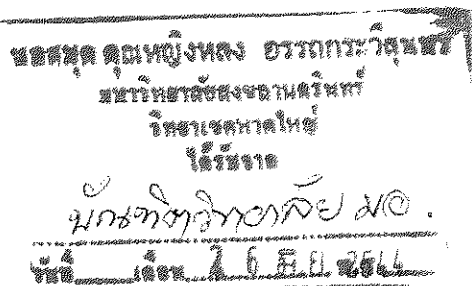 หอสมุด คุณหญิงหลง อรรถกระวีสุนทร
มหาวิทยาลัยสงขลานครินทร์
วิทยาเขตหาดใหญ่
ได้รับจาก
บัณฑิตวิทยาลัย มอ.
วันที่ เดือน 2 6 มิ.ย. 2544